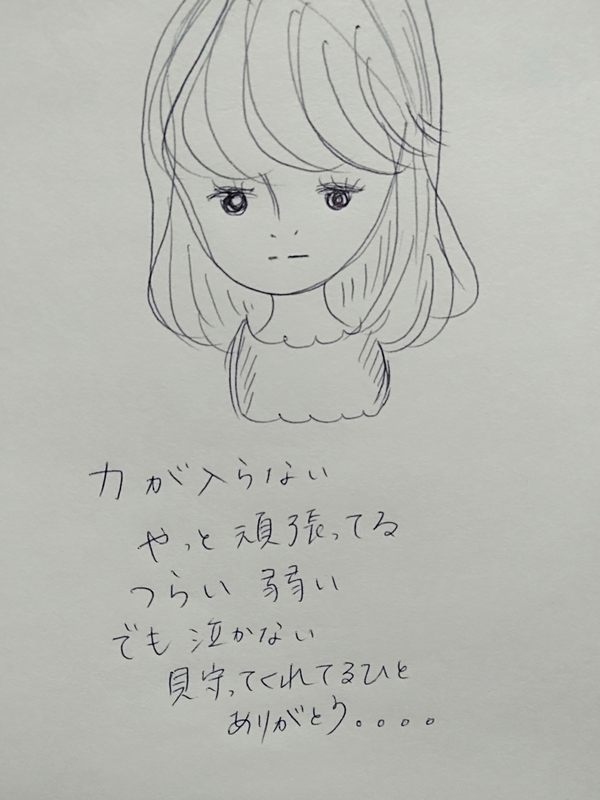 力が入らない
やっと頑張ってる
つらい 弱い
でも 泣かない
見守ってくれてるひと
ありがとう。。。。